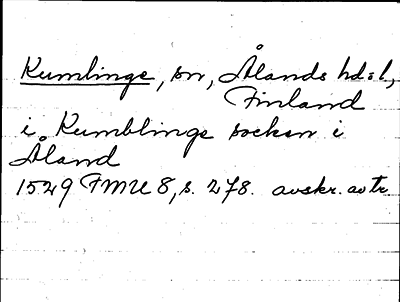 Kumlinge, sn, Ålands hd:l,
Finland
i Kumblinge socken i
Åland
1529 FMU 8, s. 278. avskr. av tr.